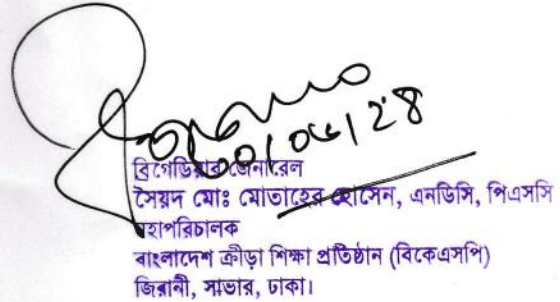 ব্রিগেডিয়ার জেনারেল
সৈয়দ মোঃ মোতাহের হোসেন, এনডিসি, পিএসসি
মহাপরিচালক
বাংলাদেশ ক্রীড়া শিক্ষা প্রতিষ্ঠান (বিকেএসপি)
জিরানী, সাভার, ঢাকা।